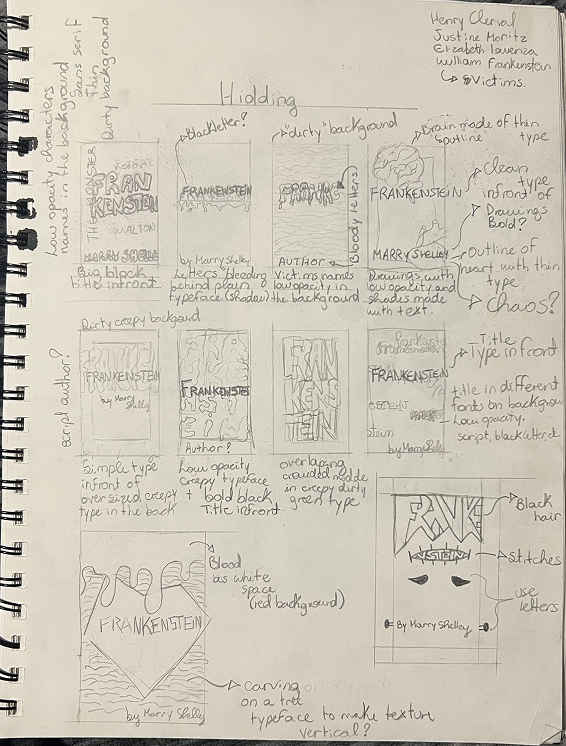 Henry Clerval
Justine Moritz
Elizabeth Lavenza
William Frankenstein
↳ victims.
Low opacity characters
names in the background
Sans serif
Thin
Dirty background
Hidding
Blackletter?
"dirty" background
Brain made of thin
outline type
THE MONSTER
VICTOR
FRAN
KENSTEIN
WALTON
MARRY SHELLE
FRANKENSTEIN
by Marry Shelley
FRANKE
AUTHOR
Bloody letters
FRANKENSTEIN
MARRY SHELLEY
Clean
type
infront of
Drawings
Bold?
Outline of
heart with thin
type
Chaos?
Big block
title infront
Letters "bleeding"
behind plain
typeface (shadow)
Victims names
low opacity in
the background
Drawings with
low opacity and
shades made
with text.
Dirty creepy background
script author?
FRANKENSTEIN
by Marry
Shelley
FRANKENSTE
Author?
FRAN
KENS
TEIN
Frankenstein
FRANKENSTEIN
stein
by Marry Shelley
Title
Type infront
title in different
fonts on background
Low opacity.
script, blackletter, etc.
Simple type
infront of
oversized creepy
type in the back
Low opacity
creepy typeface
+ bold black
Title infront
overlaping
crowded, made
in creepy dirty
green type
FRANKE
NSTEIN
By Marry Shelley
Black
hair
Stitches
use
letters
FRANKENSTEIN
by Marry Shelley
Blood
as white
space
(red background)
carving
on a tree
typeface to make texture
vertical?